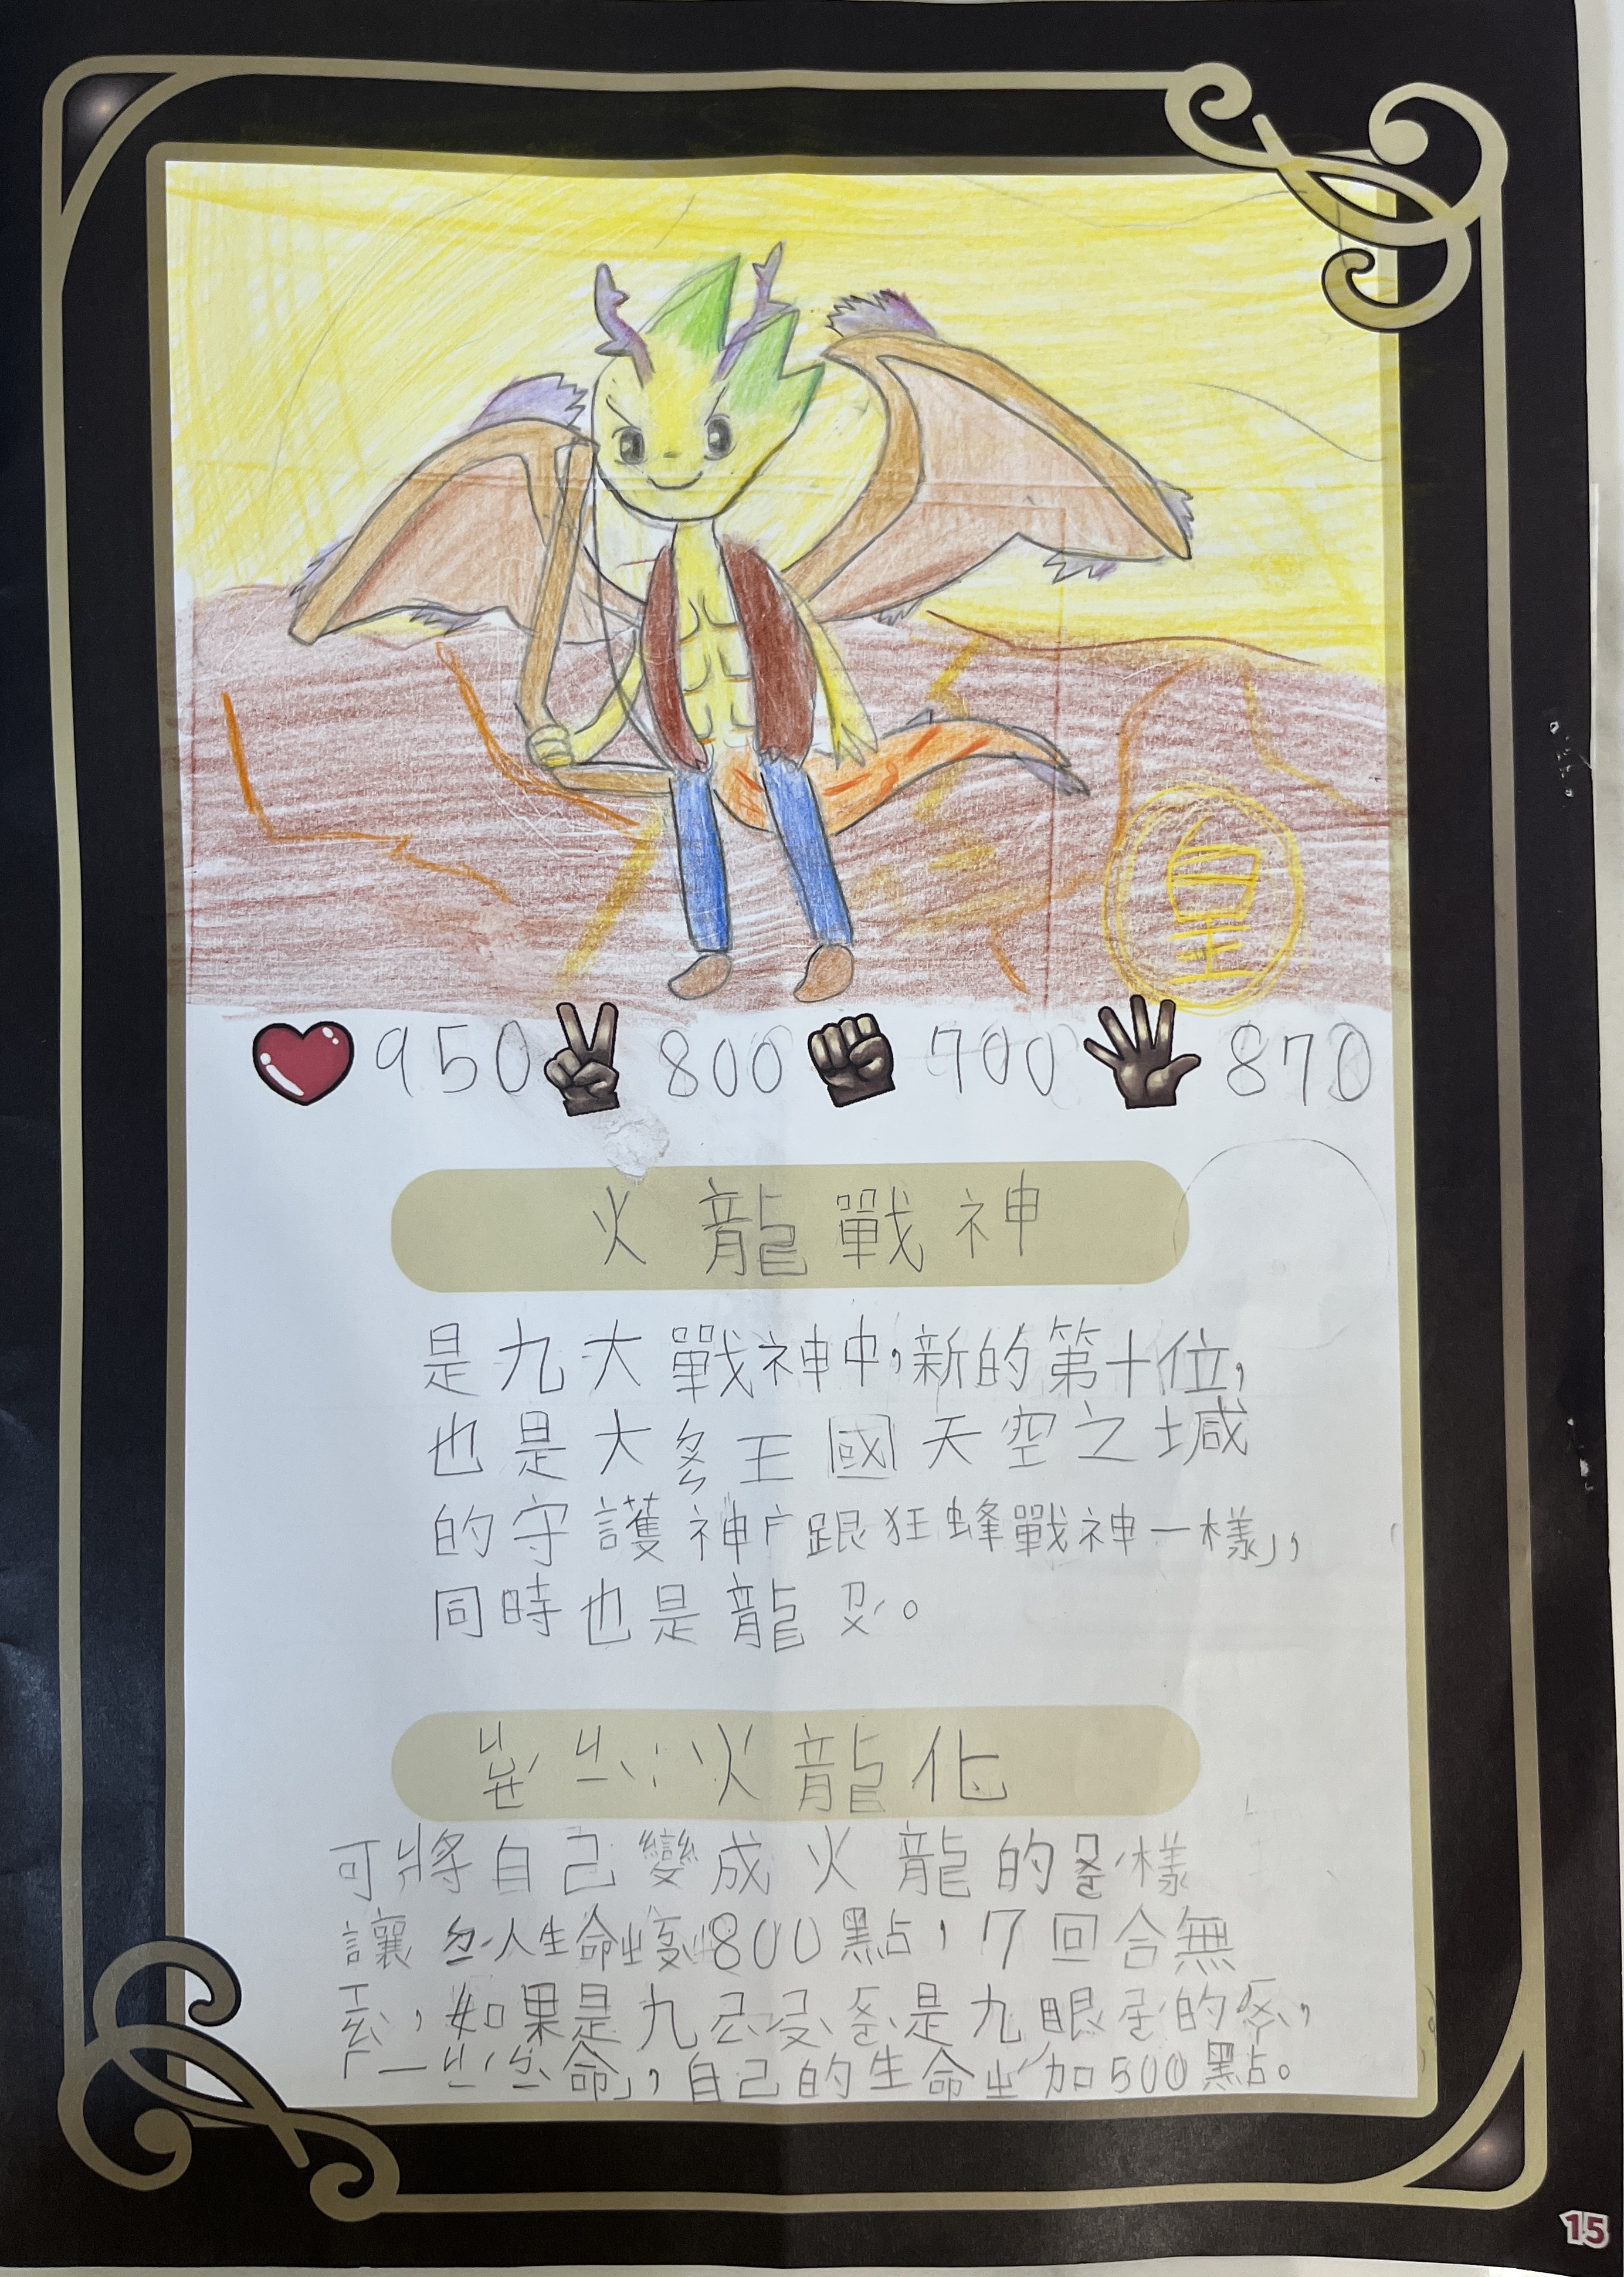 皇
950 800 700 870
火龍戰神
是九大戰神中,新的第十位,
也是大ㄉㄨㄛ王國天空之城
的守護神「跟狂蜂戰神一樣」,
同時也是龍ㄖㄣˇ。
火龍化
可將自己變成火龍的 樣
讓 人生命 800點,7回合無
,如果是九 是九眼 的 ,
命」,自己的生命 加500點。
15